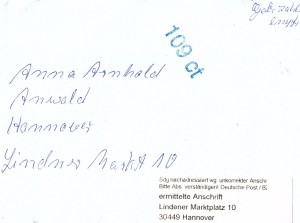 109 ct
Anna Arnhold
Anwald
Hannover
Lindner Markt 10
Sdg nachadressiert wg. unkorrekter Anschr
Bitte Abs. verständigen! Deutsche Post / BZ
ermittelte Anschrift
Lindener Marktplatz 10
30449 Hannover